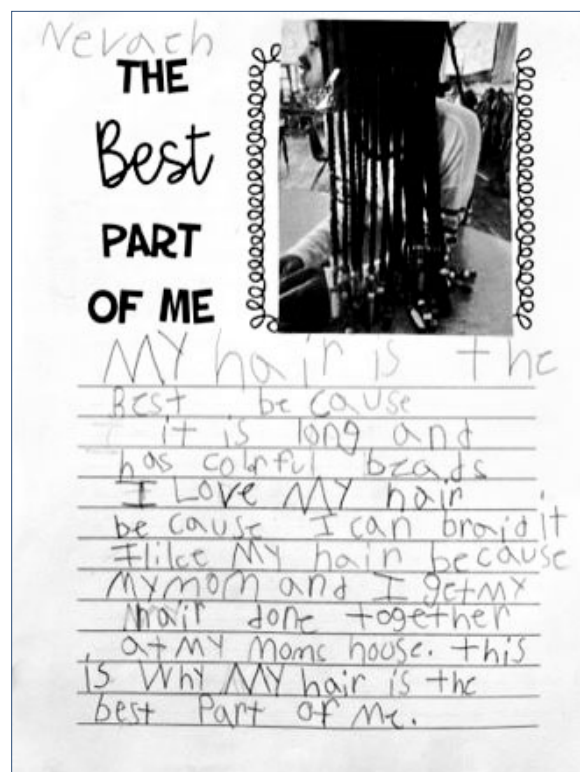 Nevaeh
THE
Best
PART
OF ME
MY hair is the
Best be cause
it is long and
has colorful beads
I Love MY hair
be cause I can braid it
I like MY hair because
MY mom and I get MY
hair done together
at MY moms house. this
is Why MY hair is the
best Part of Me.